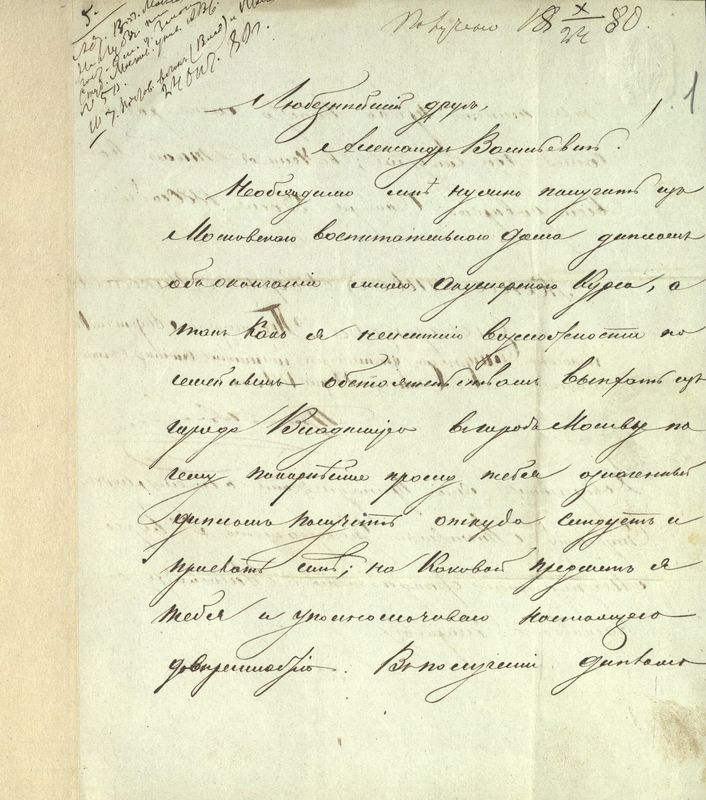 5.
24 окт. 80 г.
Получено 18 X/24 80.
1
Любезнѣйшій другъ,
Александръ Васильевичъ!
Необходимо мнѣ нужно получить изъ
Московскаго воспитательнаго Дома дипломъ
объ окончаніи мною Акушерскаго Курса, а
такъ какъ я неимѣю возможности по
семейнымъ обстоятельствамъ выѣхать изъ
города Владиміра въ городъ Москву по
чему покорнѣйше прошу тебя означенный
дипломъ получить откуда слѣдуетъ и
прислать мнѣ; на каковой предметъ я
тебя и уполномочиваю настоящею
довѣренностію. Въ полученіи диплома